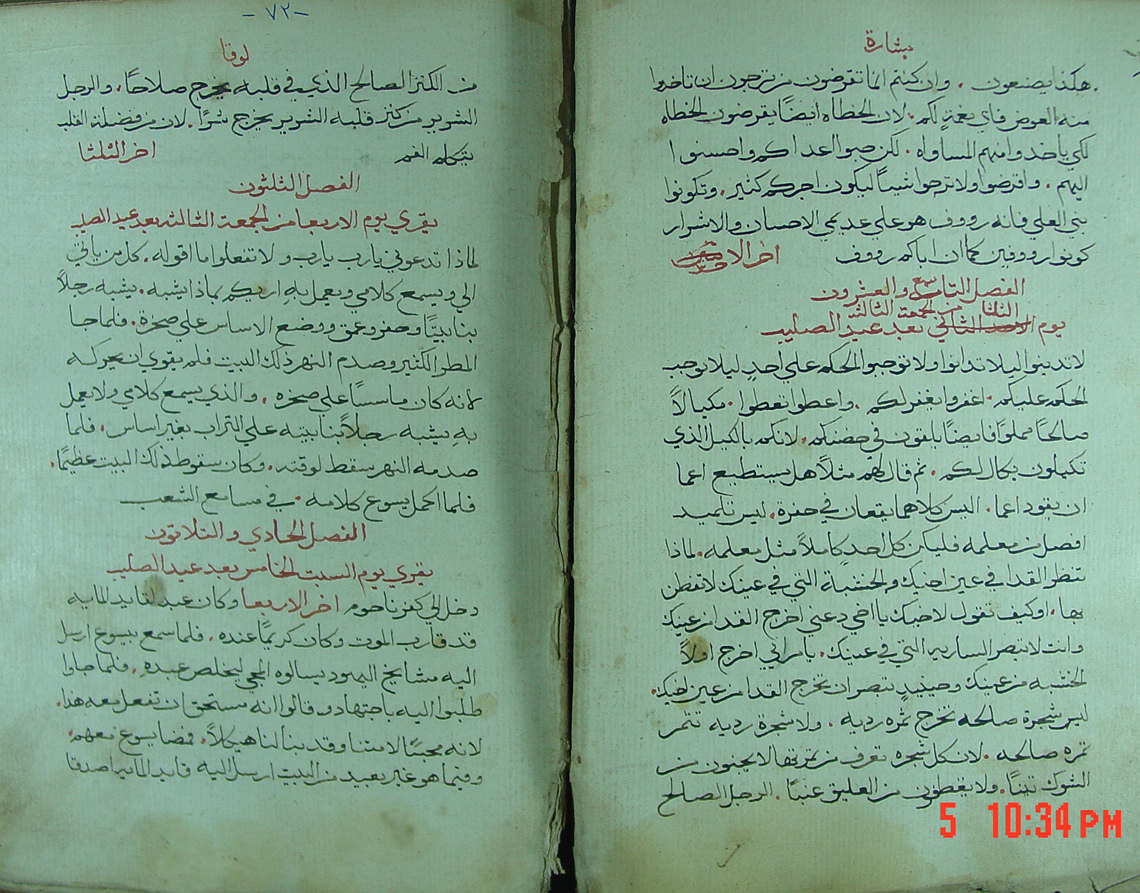 بشارة
هكذا يصنعون . وان كنتم انما تقرضون من ترجون ان تاخذوا
منه العوض فاي نعمةٍ لكم . لان الخطاه ايضًا يقرضون الخطاه
لكي ياخدوا منهم المساواه . لكن حبوا اعداكم واحسنوا
اليهم . واقرضوا ولا ترجوا شيئاً ليكون اجركم كثير . وتكونوا
بني العلي فانه رووف هو علي عديمي الاحسان والاشرار
كونوا رووفين كما ان اباكم رووف اخر الا
الفصل التاسع والعشرون
الثلثا من الجمعة الثالثه
يوم الثاني بعد عيد الصليب
لا تدينوا ليلا تدانوا ولا توجبوا الحكم علي احدٍ ليلا يوجب
الحكم عليكم . اغفروا يغفر لكم . واعطوا تعطوا . مكيالاً
صالحًا مملوًا فايضًا يلقون في حضنكم . لانكم بالكيل الذي
تكيلون يكال لكم . ثم قال لهم مثلاً هل يستطيع اعما
ان يقود اعما . اليس كلاهما يقعان في حفرة . ليس تلميد
افضل من معلمه فليكن كل احدٍ كاملاً مثل معلمه . لماذا
تنظر القدا في عين اخيك والخشبة التي في عينك لا تفطن
بها . او كيف تقول لاخيك يا اخي دعني اخرج القدا من عينك
وانت لا تبصر الساريه التي في عينك . يا مراني اخرج اولاً
الخشبه من عينك وحينيدٍ تبصر ان تخرج القدا من عين اخيك .
ليس شجرة صالحه تخرج ثمره رديه . ولا شجرة رديه تثمر
ثمره صالحه . لان كل شجره تعرف من ثمرتها لا يجنون من
الشوك تينًا . ولا يقطفون من العليق عنبًا . الرجل الصالح
5 10:34 PM
- ٧٢ -
لوقا
من الكنز الصالح الذي في قلبه يخرج صلاحًا . والرجل
الشرير من كنز قلبه الشرير يخرج شرًا . لان من فضلة القلب
يتكلم الفم اخر الثلثا
الفصل الثلثون
يقري يوم الاربعا من الجمعة الثالثه بعد عيد الصليب
لماذا تدعوني يا رب يا رب ولا تفعلوا ما اقوله . كل من ياتي
الي ويسمع كلامي ويعمل به اريكم بماذا يشبه . يشبه رجلاً
بنا بيتًا وحفر وعمق ووضع الاساس علي صخرة . فلما جا
المطر الكثير وصدم النهر ذلك البيت فلم يقوي ان يحركه
لانه كان ماسسًا علي صخره . والذي يسمع كلامي ولا يعمل
به يشبه رجلاً بنا بيته علي التراب بغير اساس . فلما
صدمه النهر سقط لوقته . وكان سقوط ذلك البيت عظيمًا .
فلما اكمل يسوع كلامه . في مسامع الشعب
الفصل الحادي والتلاتون
يقري يوم السبت الخامس بعد عيد الصليب
دخل الي كفرناحوم اخر الاربعا وكان عبد لقايد المايه
قد قارب الموت وكان كريمًا عنده . فلما سمع بيسوع ارسل
اليه مشايخ اليهود يسالوه المجي ليخلص عبده . فلما جاوا
طلبوا اليه باجتهاد وقالوا انه مستحق ان تفعل معه هدا .
لانه محبًا لامتنا وقد بنا لنا هيكلاً . فمضا يسوع معهم .
وفيما هو غير بعيد من البيت ارسل اليه قايد المايه اصدقا